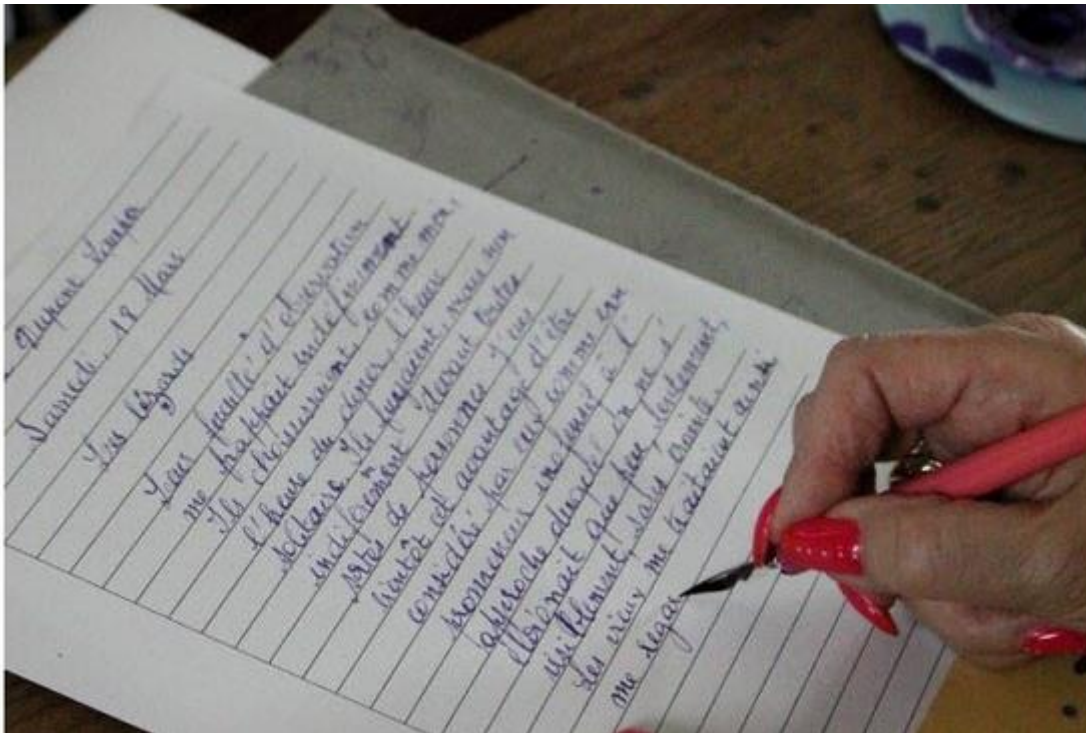 Dupont
Samedi, 18 Mars
Les lézards
Leur faculté d'observation
me frappait indéfiniment
Ils choisissaient, comme moi,
l'heure du dîner, l'heure
solitaire. Ils fuyaient, mais non
indifféremment devant toutes
sortes de personnes. J'eus
bientôt l'avantage d'être
considéré par eux comme un
promeneur inoffensif à l'
approche duquel on ne s'
éloignait que peu, lentement,
visiblement, sans crainte.
Les vieux me traitaient ainsi
me regar